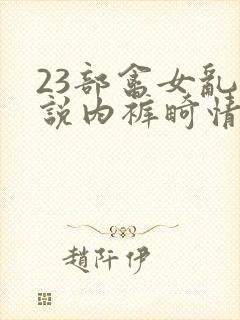 23部畜女亂
説内裤畸情
趙阡伊